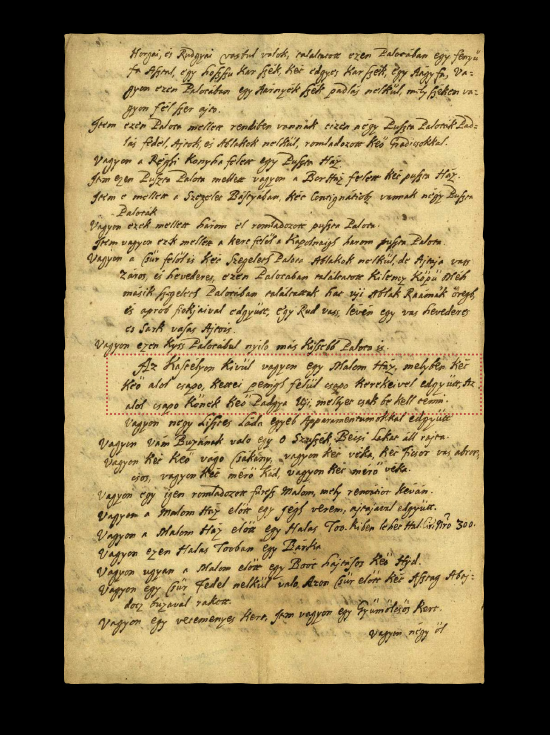 Horgai, és Rudgyai vastul valok, találtatott ezen Palotában egy fenyü
fa Asztal, egy hoszszu Kar szék, Két edgyes Kar szék, Egy Nagy fa, Va-
gyon ezen Palotában egy Arnyék szék padlás nelkül, mely széken va-
gyon fél szer ajto.
Item ezen Palota mellett rendiben vannak eizen négy Puszta Paloták Pad-
lás fedel, Ajtok, és Ablakok nelkül, romladozott Keö Gradicsokkal.
Vagyon a Réghi Konyha felett egy Puszta Ház.
Item ezen Puszta Palota mellett vagyon a Bor Ház felett Két puszta Ház.
Item e mellett a Szegelet Bástyában, Két Contignatioban vannak négy Puszta
Paloták
Vagyon ezek mellett három el romladozott puszta Palota.
Item vagyon ezek mellett a kert felöl a Kapolnáigh három puszta Palota.
Vagyon a Csür felöl is Két Szegeletes Palota Ablakok nelkül, de Ajtaja vass
záros, és hevederes, ezen Palotában találtatott Kilencz Köpü Méh
másik szegeletes Palotában találtattak hat uj Ablak Raamák öregh
és aprod fiokjaival edgyütt, egy Rud vass, lévén egy vas hevederes
és Sark vasas Ajtois.
Vagyon ezen Kyss Palotábul nyilo más Kissebb Palota is.
Az Kastélyon Kivül vagyon egy Malom Ház, melyben Két
Keö alol csapo, Kettei penigh felül csapo Kerekeivel edgyütt, Az
alol csapo Könek Két Padgya Uj, mellyet csak bé kell tenni.
Vagyon négy Lisztes Láda egyéb Apparamentumokkal edgyütt
Vagyon Vám Buzának valo egy Szuszék Bécsi Lakat áll rajta.
Vagyon Két Keö vágo Csákány, vagyon Két véka, Két Finsor vas abron-
csos, vagyon Két mérö Kád, vagyon Két mérö véka.
Vagyon egy igen romladozott fürész Malom, mely renovatiot Kéván.
Vagyon a Malom Ház elött egy Jegh verem, ajtajával edgyütt.
Vagyon a Malom Ház elött egy Halas Too. Kiben lehet Hal Cir. Nro 300.
Vagyon ezen Halas Tooban egy Bárka
Vagyon ugyan a Malom elött egy Boot hajtásos Keö Hyd.
Vagyon egy Csür Fedel nelkül valo, Azon Csür elött Két Asztag Abaj-
docz buzával rakott.
Vagyon egy veteményes Kert, Item vagyon egy Gyümölcsös Kert.
Vagyon négy öl